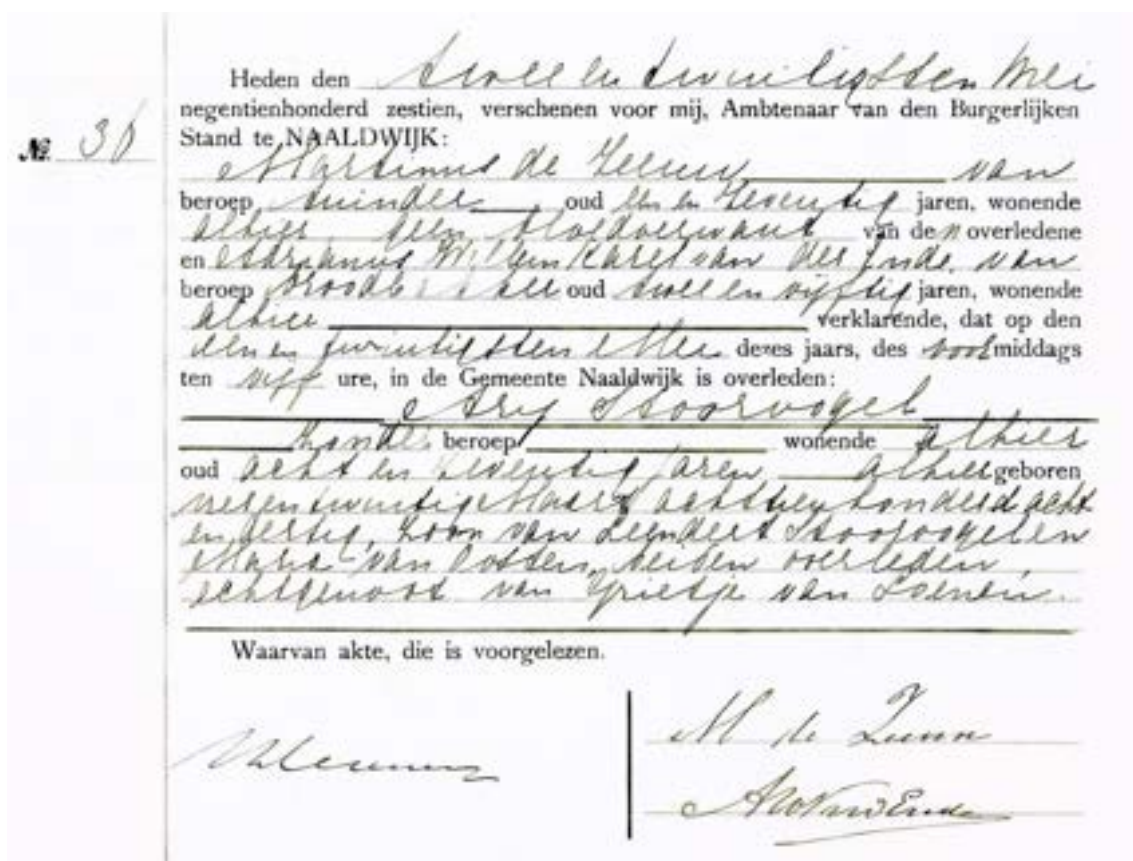 Heden den twee en twintigsten Mei
negentienhonderd zestien, verschenen voor mij, Ambtenaar van den Burgerlijken
Stand te NAALDWIJK:
№ 36
Martinus de Zeeuw van
beroep tuinder oud een en zeventig jaren, wonende
alhier, geen bloedverwant van den overledene
en Adrianus Willem Karel van der Ende, van
beroep oud twee en vijftig jaren, wonende
alhier verklarende, dat op den
een en twintigsten Mei dezes jaars, des voormiddags
ten vijf ure, in de Gemeente Naaldwijk is overleden:
Ary Stoorvogel
zonder beroep wonende alhier
oud acht en zeventig jaren alhier geboren
Maart achttienhonderd acht
en dertig, zoon van Leendert Stoorvogel en
Maria van Oosten, beiden overleden,
echtgenoot van Grietje van Loenen.
Waarvan akte, die is voorgelezen.
M de Zeeuw
AWK vd Ende